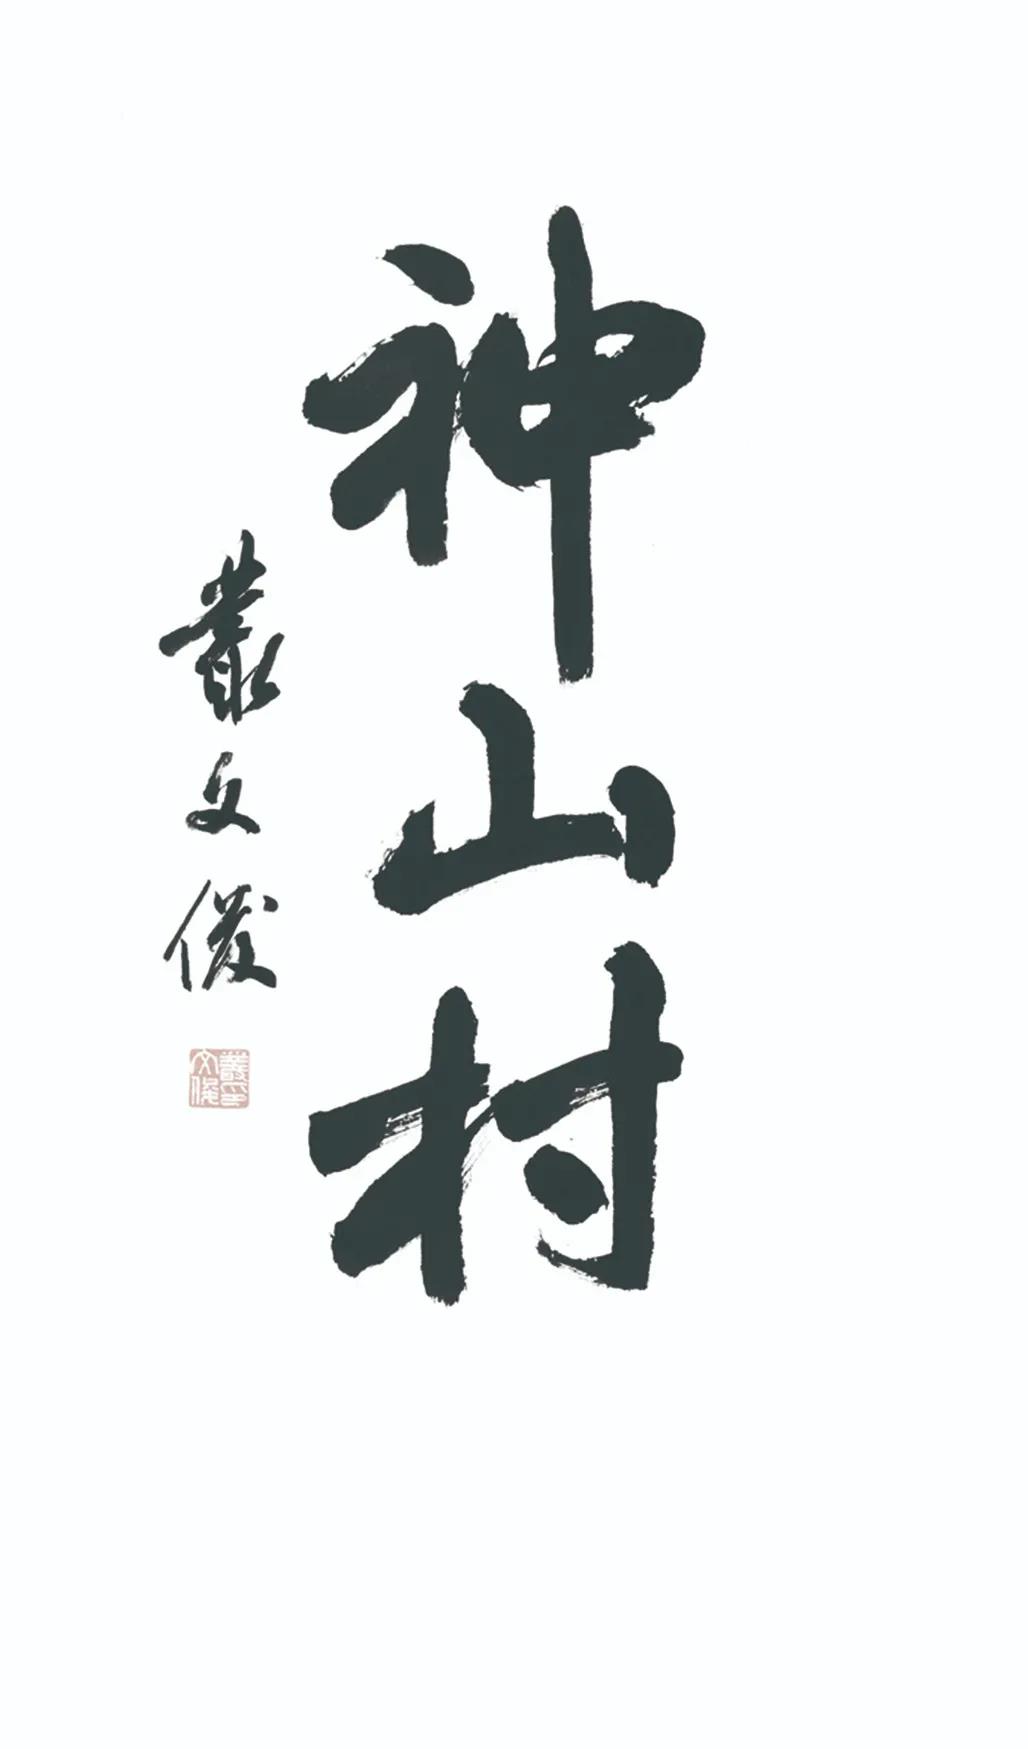 神山村
叢文俊
叢文俊印